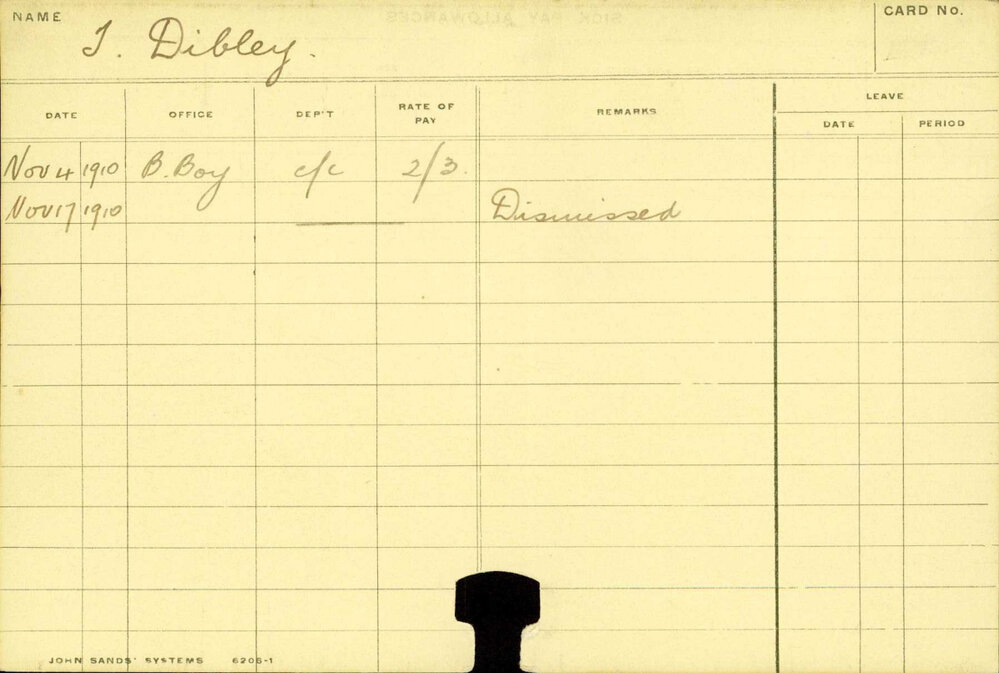 NAME
J. Dibley.
CARD No.
DATE OFFICE DEP'T RATE OF PAY REMARKS LEAVE
DATE PERIOD
Nov 4 1910 B. Boy c/c 2/3.
Nov 17 1910 Dismissed
JOHN SANDS' SYSTEMS 6206-1